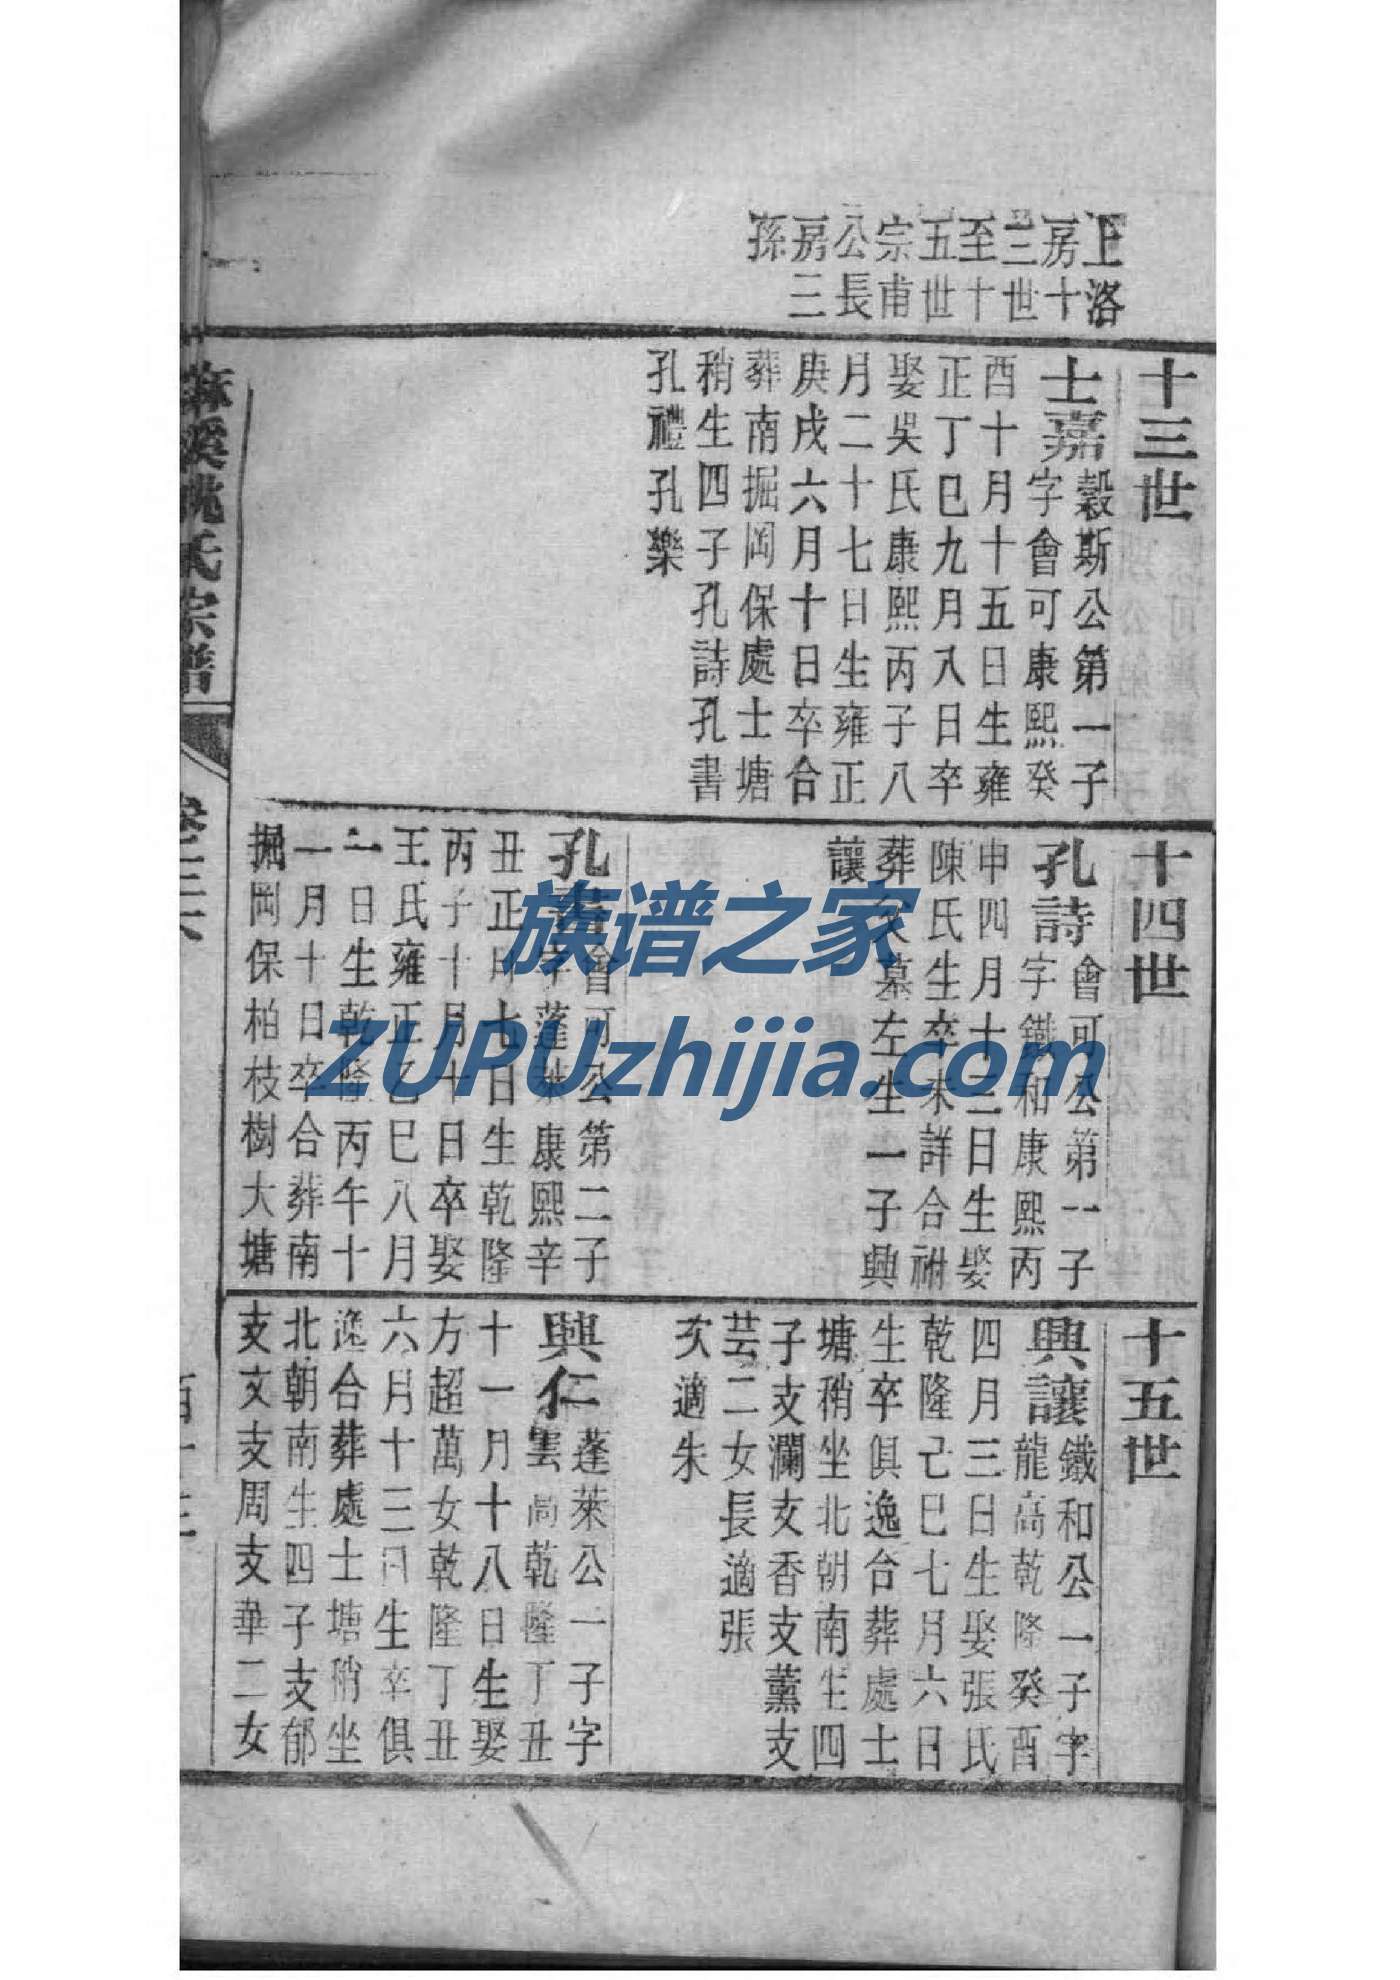 上洛
房十
三世
至十
五世
宗甫
公長
房三
孫
十三世
士嘉
穀斯公第一子
字會可康熙癸
酉十月十五日生雍
正丁巳九月八日卒
娶吳氏康熙丙子八
月二十七日生雍正
庚戌六月十日卒合
葬南掘岡保處士塘
稍生四子孔詩孔書
孔禮孔樂
十四世
孔詩
會可公第一子
字鐵和康熙丙
申四月十三日生娶
陳氏生卒未詳合祔
葬父墓左生一子興
讓
孔書
會可公第二子
字蓬萊康熙辛
丑正月七日生乾隆
丙子十月十日卒娶
王氏雍正乙巳八月
一日生乾隆丙午十
一月十日卒合葬南
掘岡保柏枝樹大塘
十五世
興讓
鐵和公一子字
龍高乾隆癸酉
四月三日生娶張氏
乾隆己巳七月六日
生卒俱逸合葬處士
塘稍坐北朝南生四
子支瀾支香支薰支
芸二女長適張
次適朱
興仁
蓬萊公一子字
雲高乾隆丁丑
十一月十八日生娶
方超萬女乾隆丁丑
六月十三日生卒俱
逸合葬處士塘稍坐
北朝南生四子支郁
支文支周支華二女
氏宗譜
族谱之家
ZUPUzhijia.com